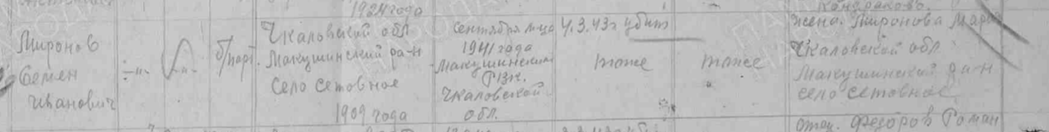 1924 года
Кондраково.
Миронов
Семен
Иванович
-"-
-"-
б/парт.
Чкаловской обл
Макушинский ра-н
село Сетовное
1909 года
сентября м-ца
1941 года
Макушинским
РВК.
Чкаловской
обл.
4.3.43г убит
тоже
тоже
"
жена. Миронова Мария
Чкаловской обл
Макушинский ра-н
село Сетовное
отец. Федоров Роман